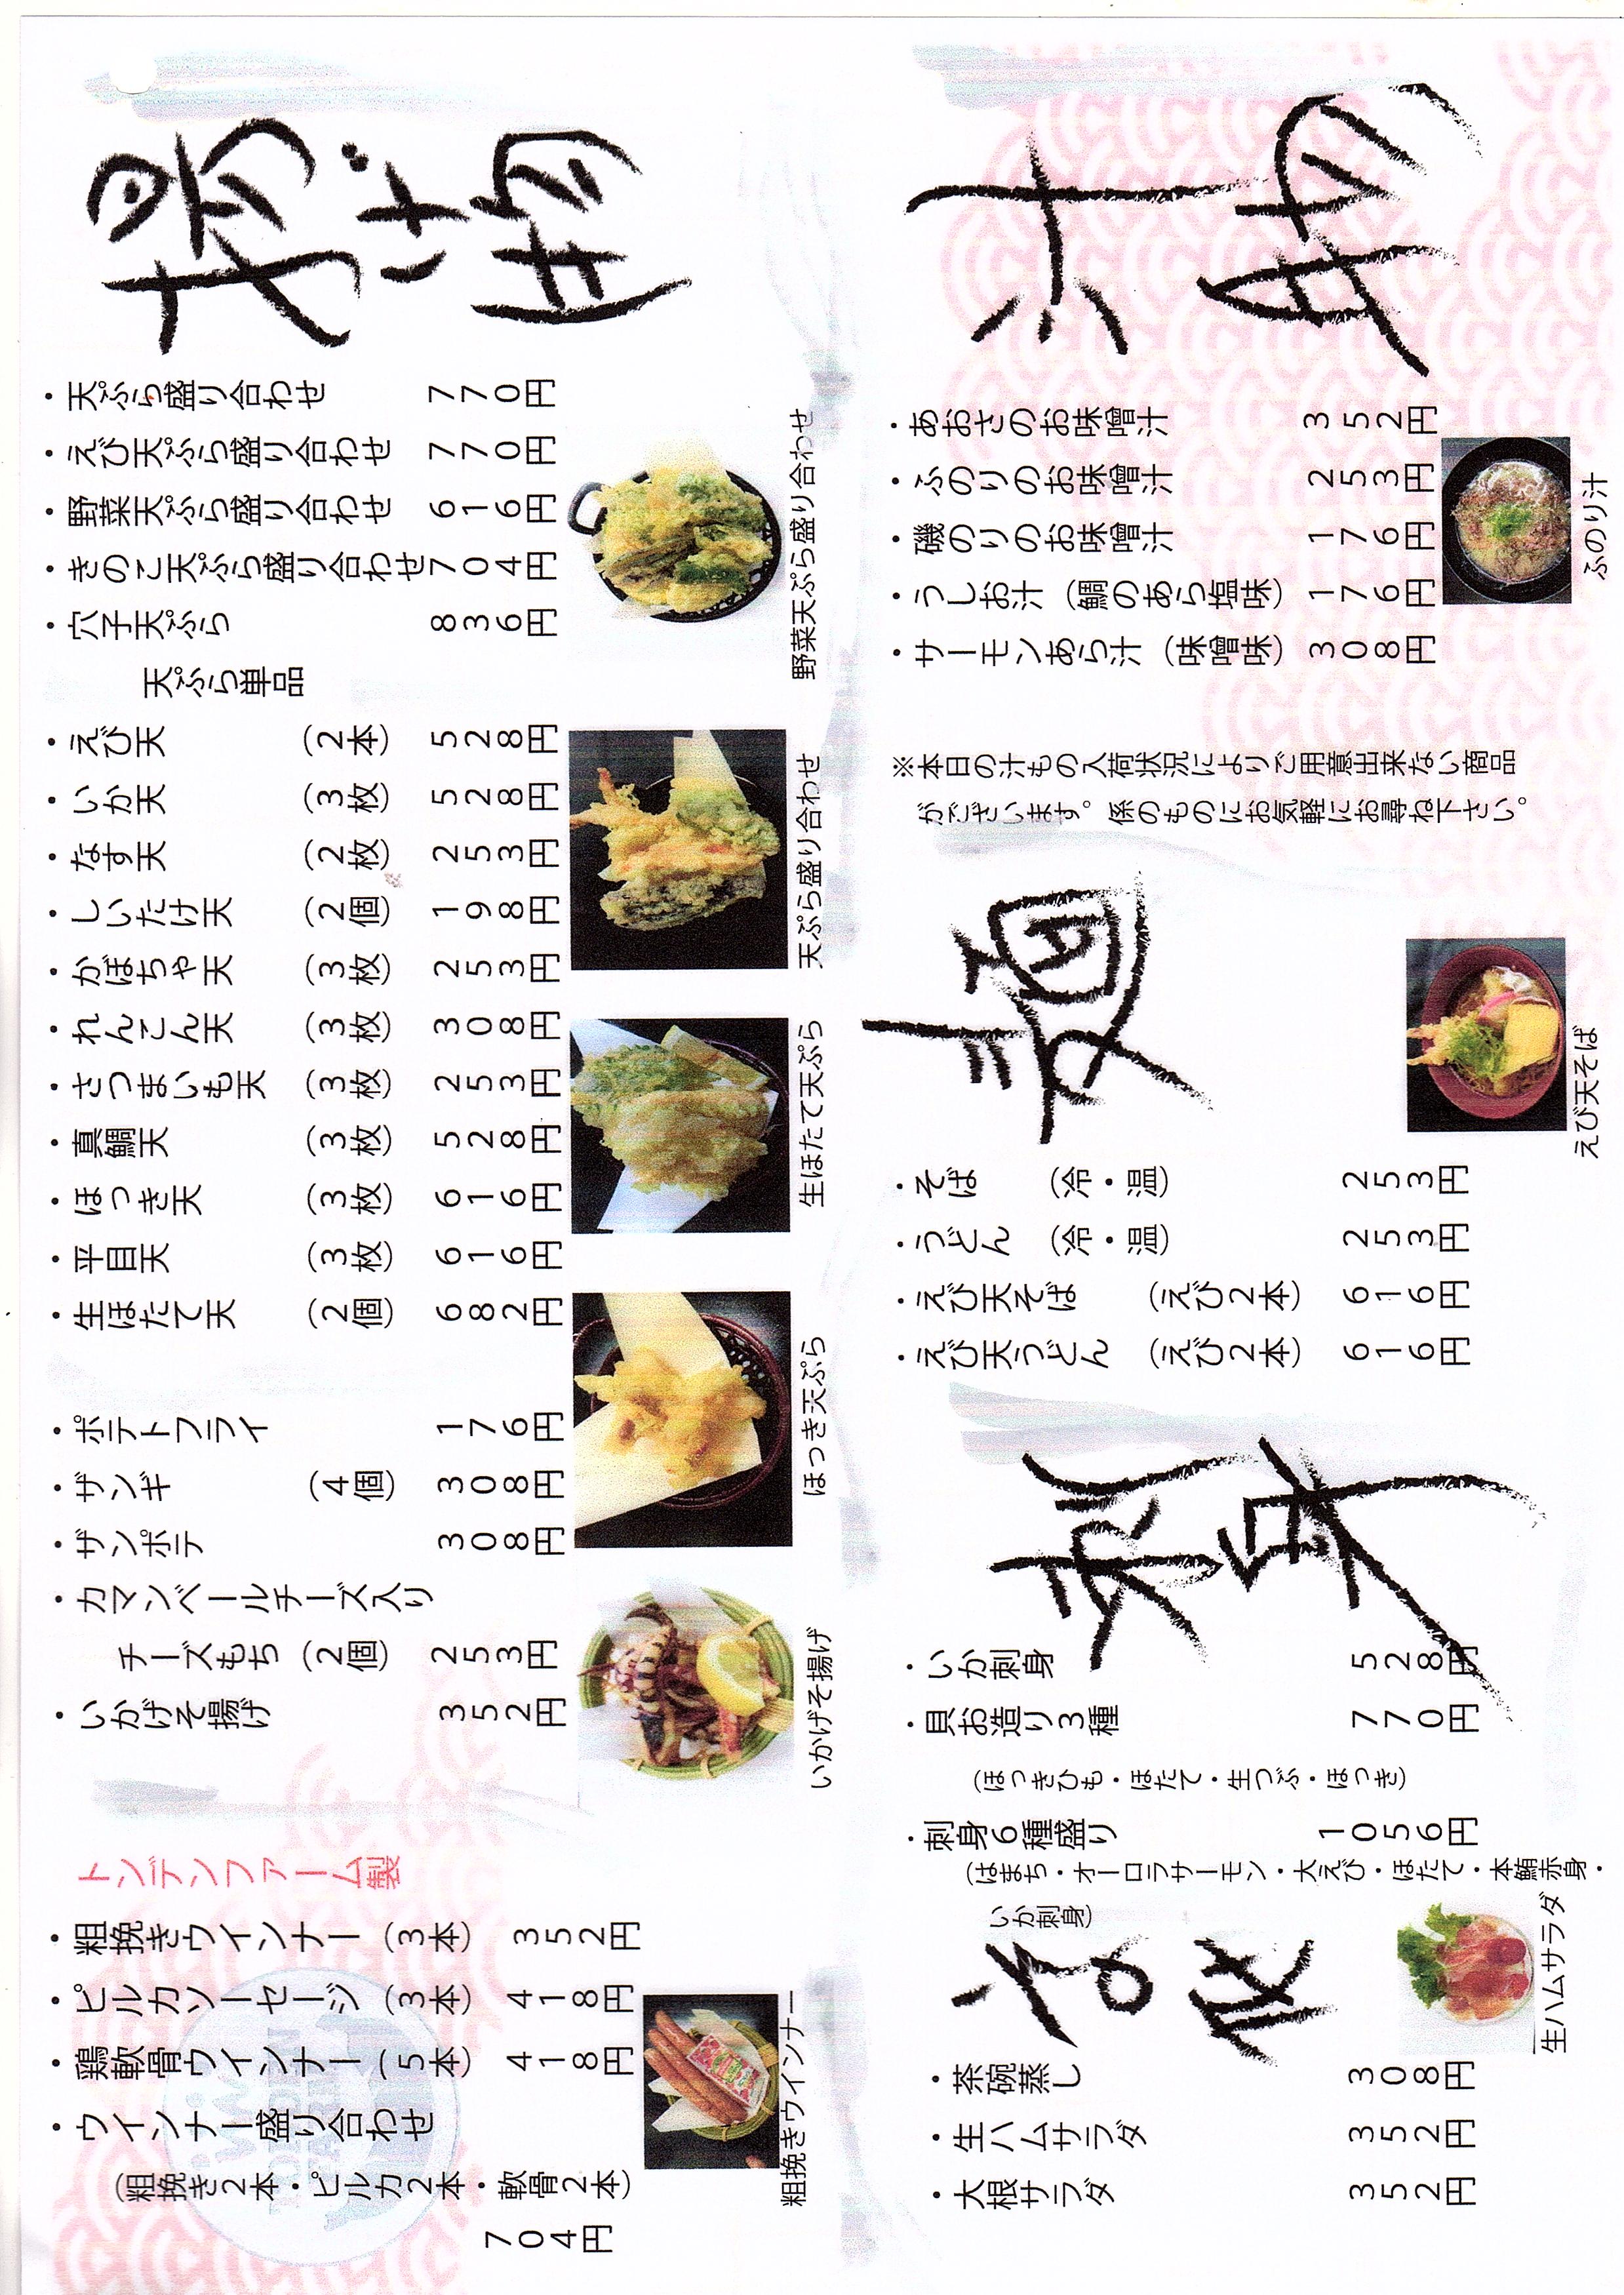 揚げ物
・天ぷら盛り合わせ 770円
・えび天ぷら盛り合わせ 770円
・野菜天ぷら盛り合わせ 616円
・きのこ天ぷら盛り合わせ704円
・穴子天ぷら 836円
天ぷら単品
・えび天 (2本) 528円
・いか天 (3枚) 528円
・なす天 (2枚) 253円
・しいたけ天 (2個) 198円
・かぼちゃ天 (3枚) 253円
・れんこん天 (3枚) 308円
・さつまいも天 (3枚) 253円
・真鯛天 (3枚) 528円
・ほっき天 (3枚) 616円
・平目天 (3枚) 616円
・生ほたて天 (2個) 682円
・ポテトフライ 176円
・ザンギ (4個) 308円
・ザンポテ 308円
・カマンベールチーズ入り
チーズもち (2個) 253円
・いかげそ揚げ 352円
野菜天ぷら盛り合わせ
天ぷら盛り合わせ
生ほたて天ぷら
ほっき天ぷら
いかげそ揚げ
トンデンファーム製
・粗挽きウインナー (3本) 352円
・ピルカソーセージ (3本) 418円
・鶏軟骨ウインナー (5本) 418円
・ウインナー盛り合わせ
(粗挽き2本・ピルカ2本・軟骨2本)
704円
粗挽きウインナー
汁物
・あおさのお味噌汁 352円
・ふのりのお味噌汁 253円
・磯のりのお味噌汁 176円
・うしお汁 (鯛のあら塩味) 176円
・サーモンあら汁 (味噌味) 308円
ふのり汁
※本日の汁もの入荷状況によりご用意出来ない商品
がございます。係のものにお気軽にお尋ね下さい。
麺
・そば (冷・温) 253円
・うどん (冷・温) 253円
・えび天そば (えび2本) 616円
・えび天うどん (えび2本) 616円
えび天そば
刺身
・いか刺身 528円
・貝お造り3種 770円
(ほっきひも・ほたて・生つぶ・ほっき)
・刺身6種盛り 1056円
(はまち・オーロラサーモン・大えび・ほたて・本鮪赤身・
いか刺身)
その他
・茶碗蒸し 308円
・生ハムサラダ 352円
・大根サラダ 352円
生ハムサラダ